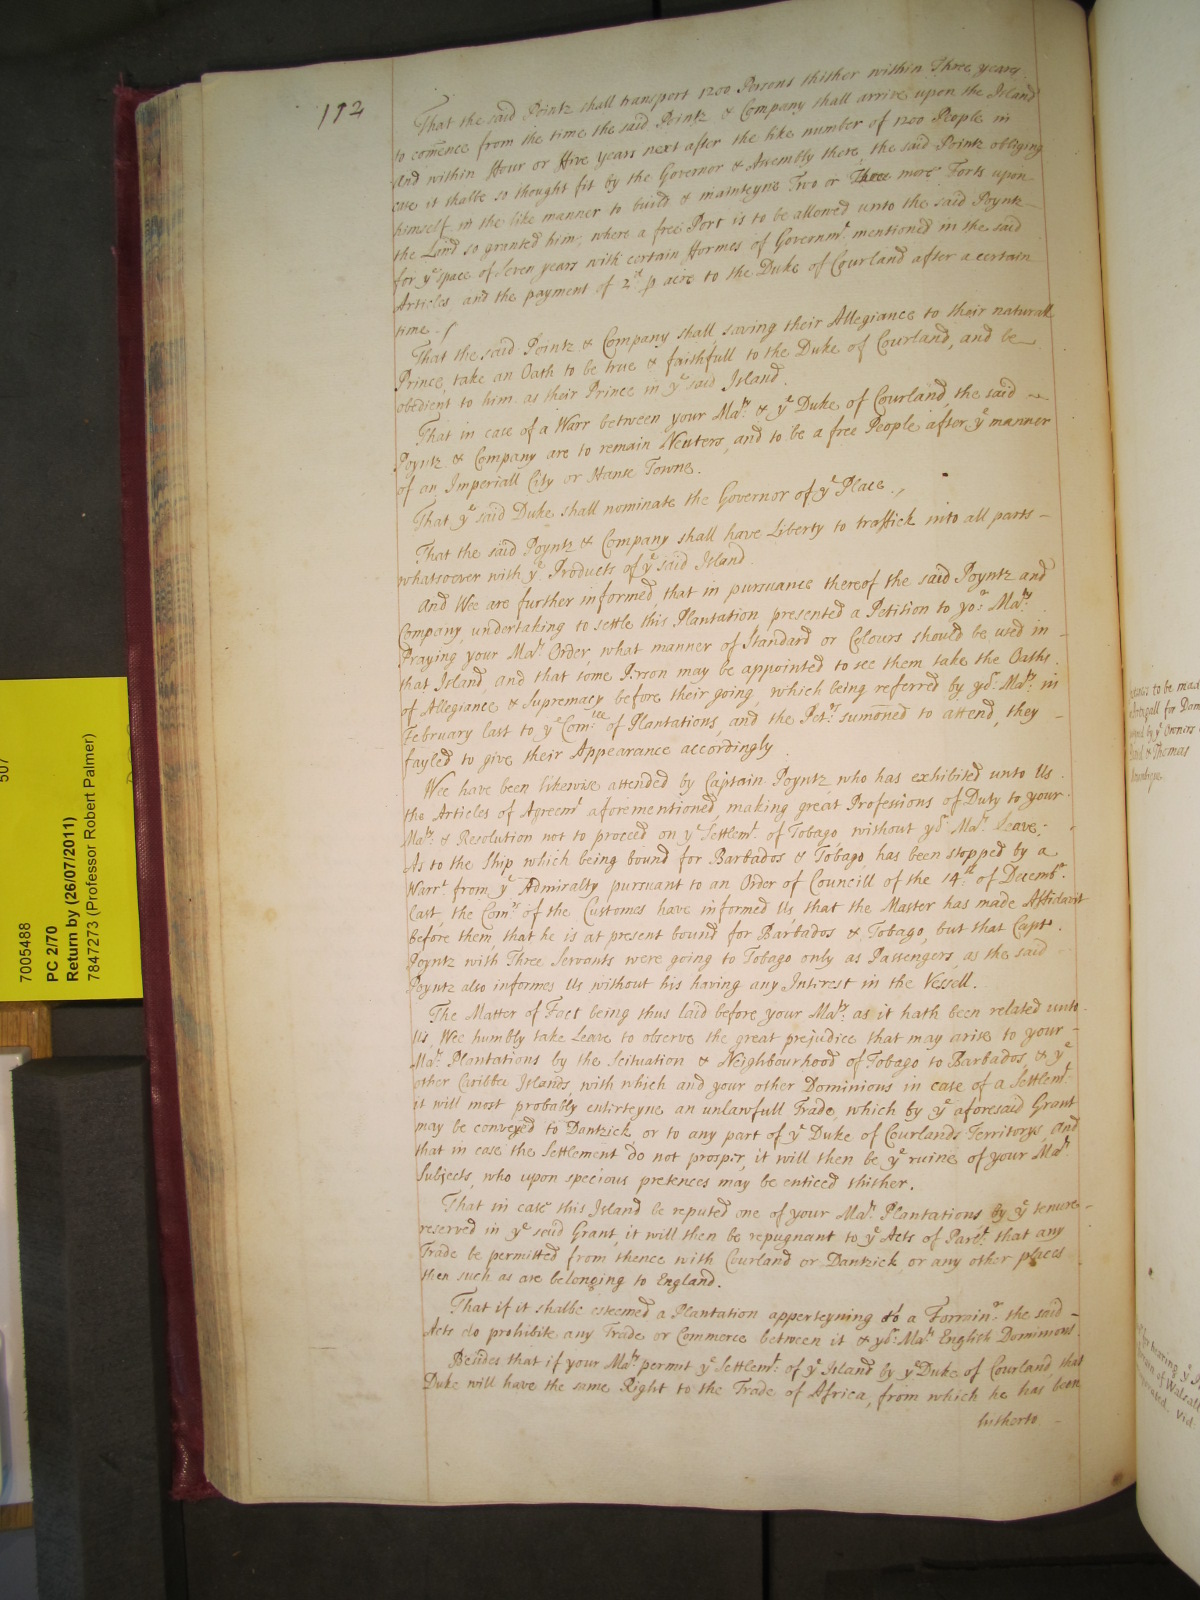 112
That the said Pointz shall transport 1200 Persons thither within Three years
to com̄ence from the time the said Pointz & Company shall arrive upon the Island
And within Four or Five years next after the like number of 1200 People in
case it shalbe so thought fit by the Governor & Assembly there, the said Pointz obliging
himself in the like manner to build & mainteyne Two or Three more Forts upon
the Land so granted him, where a free Port is to be allowed unto the said Poyntz
for yᵉ space of Seven years with certain Formes of Governmᵗ. mentioned in the said
Articles and the payment of 2ᵈ p acre to the Duke of Courland after a certain
time. /
That the said Pointz & Company shall, saving their Allegiance to their naturall
Prince, take an Oath to be true & faithfull to the Duke of Courland, and be
obedient to him as their Prince in yᵉ said Island.
That in case of a Warr between your Maᵗʸ. & yᵉ Duke of Courland, the said
Poyntz & Company are to remain Neuters, and to be a free People after yᵉ manner
of an Imperiall City or Hanse Towne.
That yᵉ said Duke shall nominate the Governor of yᵉ Place.,
That the said Poyntz & Company shall have Liberty to traffick into all parts -
whatsoever with yᵉ Products of yᵉ said Island
And Wee are further informed, that in pursuance thereof the said Poyntz and
Company, undertaking to settle this Plantation, presented a Petition to yoʳ. Maᵗʸ.
Praying your Maᵗˢ. Order, what manner of Standard or Colours should be used in -
that Island, and that some Person may be appointed to see them take the Oaths.
of Allegiance & Supremacy before their going, which being referred by yoʳ. Maᵗʸ. in
February last to yᵉ Comᵗᵉᵉ of Plantations, and the Petʳˢ summoned to attend, they -
fayled to give their Appearance accordingly.
Wee have been likewise attended by Captain Poyntz, who has exhibited unto Us
the Articles of Agreemᵗ aforementioned, making great Professions of Duty to your
Maᵗʸ. & Resolution not to proceed on yᵉ Settlemᵗ. of Tobago, without yoʳ. Maᵗˢ. leave;
As to the Ship which being bound for Barbados & Tobago, has been stopped by a
Warrᵗ. from yᵉ Admiralty pursuant to an Order of Councill of the 14ᵗʰ of Decembʳ.
last, the Comʳˢ of the Customes have informed Us, that the Master has made Affidavit
before them, that he is at present bound for Barbados & Tobago, but that Captⁿ.
Poyntz with Three Servants were going to Tobago only as Passengers, as the said
Poyntz also informes Us without his having any Interest in the Vessell.
The Matter of Fact being thus laid before your Maᵗʸ. as it hath been related unto
Us, Wee humbly take Leave to observe the great prejudice that may arise to your -
Maᵗˢ. Plantations by the Scituation & Neighbourhood of Tobago to Barbados, & yᵉ
other Caribbee Islands, with which and your other Dominions in case of a Settlemᵗ.
it will most probably enterteyne an unlawfull Trade, which by yᵉ aforesaid Grant
may be conveyed to Dantzick, or to any part of yᵉ Duke of Courlands Territorys, And
that in case the Settlement do not prosper, it will then be yᵉ ruine of your Maᵗˢ.
Subjects, who upon specious pretences may be enticed thither.
That in case this Island be reputed one of your Maᵗˢ. Plantations by yᵉ tenure -
reserved in yᵉ said Grant, it will then be repugnant to yᵉ Acts of Parlᵗ. that any
Trade be permitted from thence with Courland or Dantzick, or any other places
then such as are belonging to England.
That if it shalbe esteemed a Plantation apperteyning to a Forrainʳ. the said -
Acts do prohibite any Trade or Commerce between it & yoʳ. Maᵗˢ. English Dominions.
Besides that if your Maᵗʸ permit yᵉ Settlemᵗ. of yᵉ Island by yᵉ Duke of Courland, that
Duke will have the same Right to the Trade of Africa, from which he has been
hitherto -
507
7005488
PC 2/70
Return by (26/07/2011)
7847273 (Professor Robert Palmer)
to be mad
for Dom
by yᵉ Owners
& Thomas
for hearing yᵉ
of Walsall
Vid.